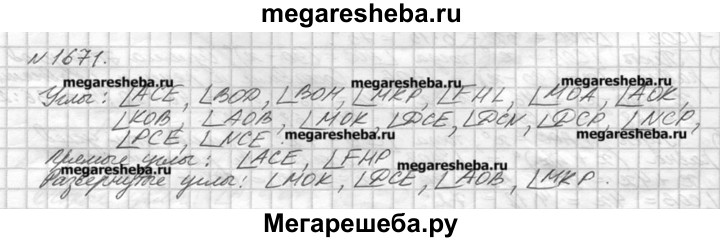 megaresheba.ru
N 1671.
megaresheba.ru megaresheba.ru megaresheba.ru
Углы: ∠ACE, ∠BOD, ∠BOH, ∠MKP, ∠FHL, ∠MOA, ∠AOK,
∠KOB, ∠AOB, ∠MOK, ∠DCE, ∠DCN, ∠DCP, ∠NCP,
∠PCE, ∠NCE.
megaresheba.ru megaresheba.ru
Прямые углы: ∠ACE, ∠FHP
megaresheba.ru megaresheba.ru
Развернутые углы: ∠MOK, ∠DCE, ∠AOB, ∠MKP.
Мегарешеба.ру